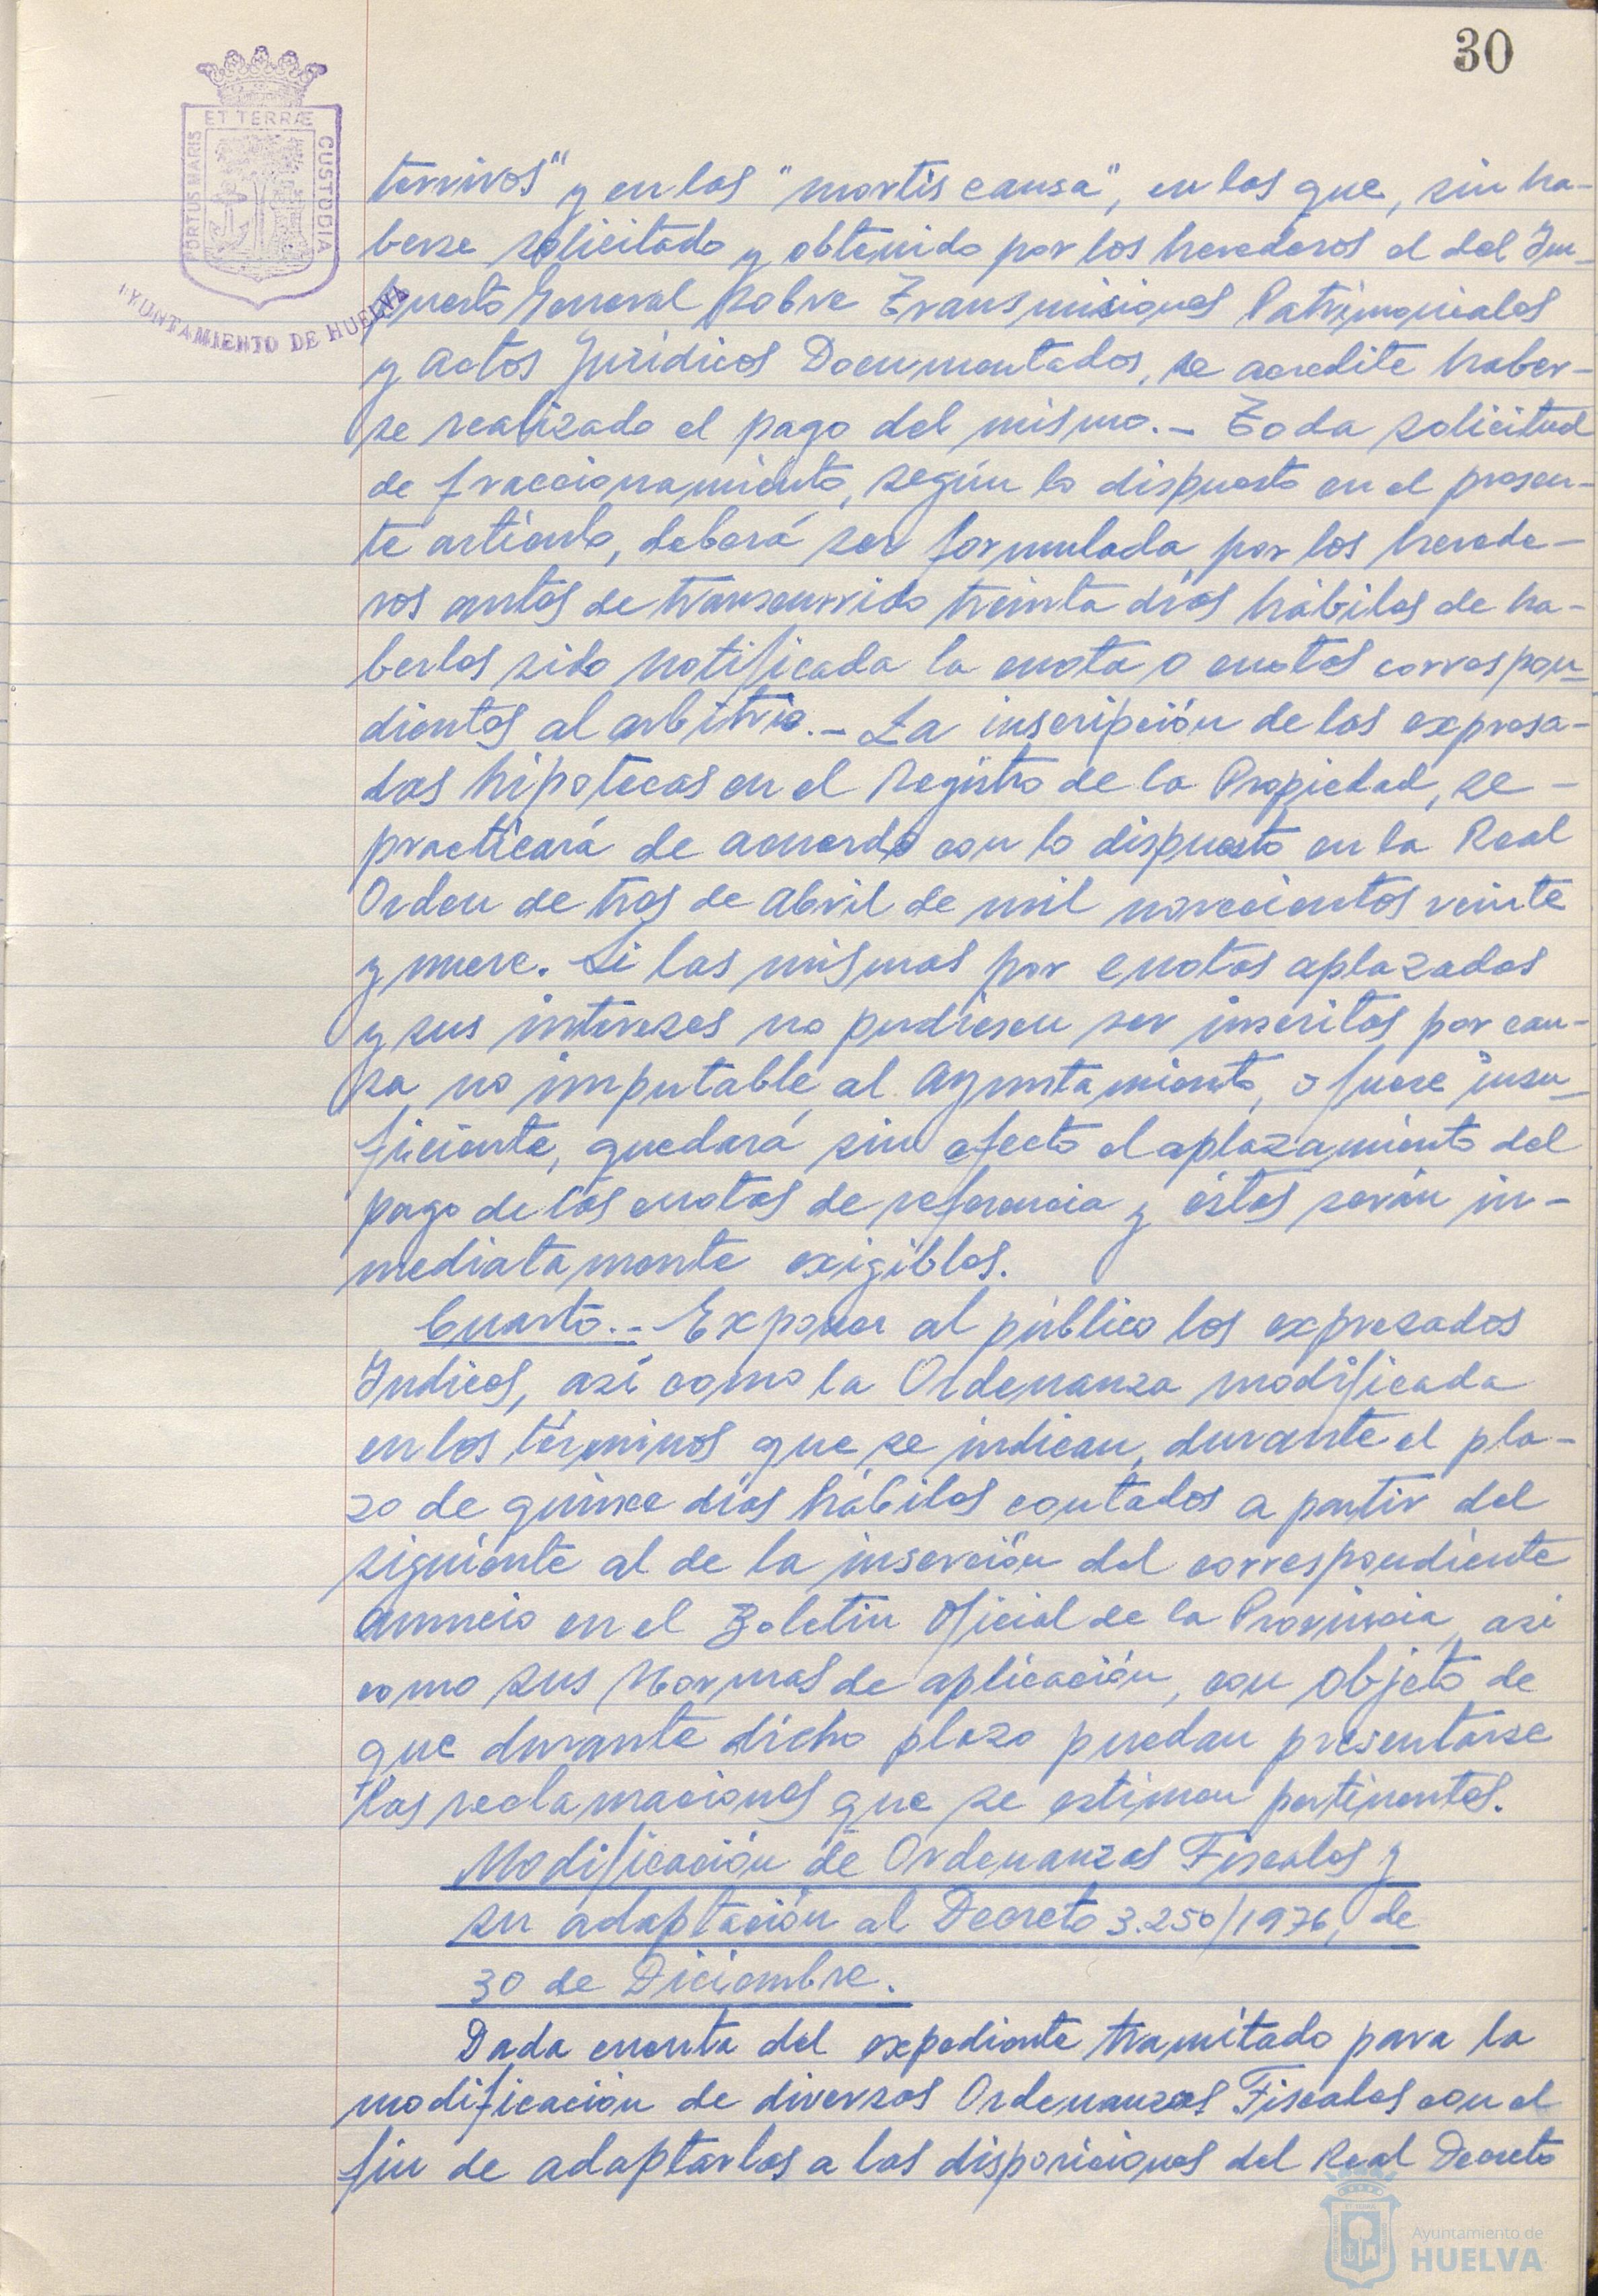 30
ET TERRÆ
PORTUS MARIS
CUSTODIA
AYUNTAMIENTO DE HUELVA
tervivos" y en las "mortis causa", en las que, sin ha-
berse solicitado y obtenido por los herederos el del Im-
puesto General sobre Transmisiones Patrimoniales
y Actos Jurídicos Documentados, se acredite haber-
se realizado el pago del mismo.- Toda solicitud
de fraccionamiento, según lo dispuesto en el presen-
te artículo, deberá ser formulada por los herede-
ros antes de transcurrido treinta días hábiles de ha-
berlos sido notificada la cuota o cuotas correspon-
dientes al arbitrio.- La inscripción de las expresa-
das hipotecas en el Registro de la Propiedad, se -
practicará de acuerdo con lo dispuesto en la Real
Orden de tres de Abril de mil novecientos veinte
y nueve. Si las mismas por cuotas aplazadas
y sus intereses no pudiesen ser inscritas por cau-
sa no imputable al Ayuntamiento, o fuese insu-
ficiente, quedará sin efecto el aplazamiento del
pago de las cuotas de referencia y éstas serán in-
mediatamente exigibles.
Cuarto.- Exponer al público los expresados
Indices, así como la Ordenanza modificada
en los términos que se indican, durante el pla-
zo de quince días hábiles contados a partir del
siguiente al de la inserción del correspondiente
anuncio en el Boletin Oficial de la Provincia, asi
como sus Normas de aplicación, con objeto de
que durante dicho plazo puedan presentarse
las reclamaciones que se estimen pertinentes.
Modificación de Ordenanzas Fiscales y
su adaptación al Decreto 3.250/1976, de
30 de Diciembre.
Dada cuenta del expediente tramitado para la
modificación de diversas Ordenanzas Fiscales con el
fin de adaptarlas a las disposiciones del Real Decreto
Ayuntamiento de
HUELVA